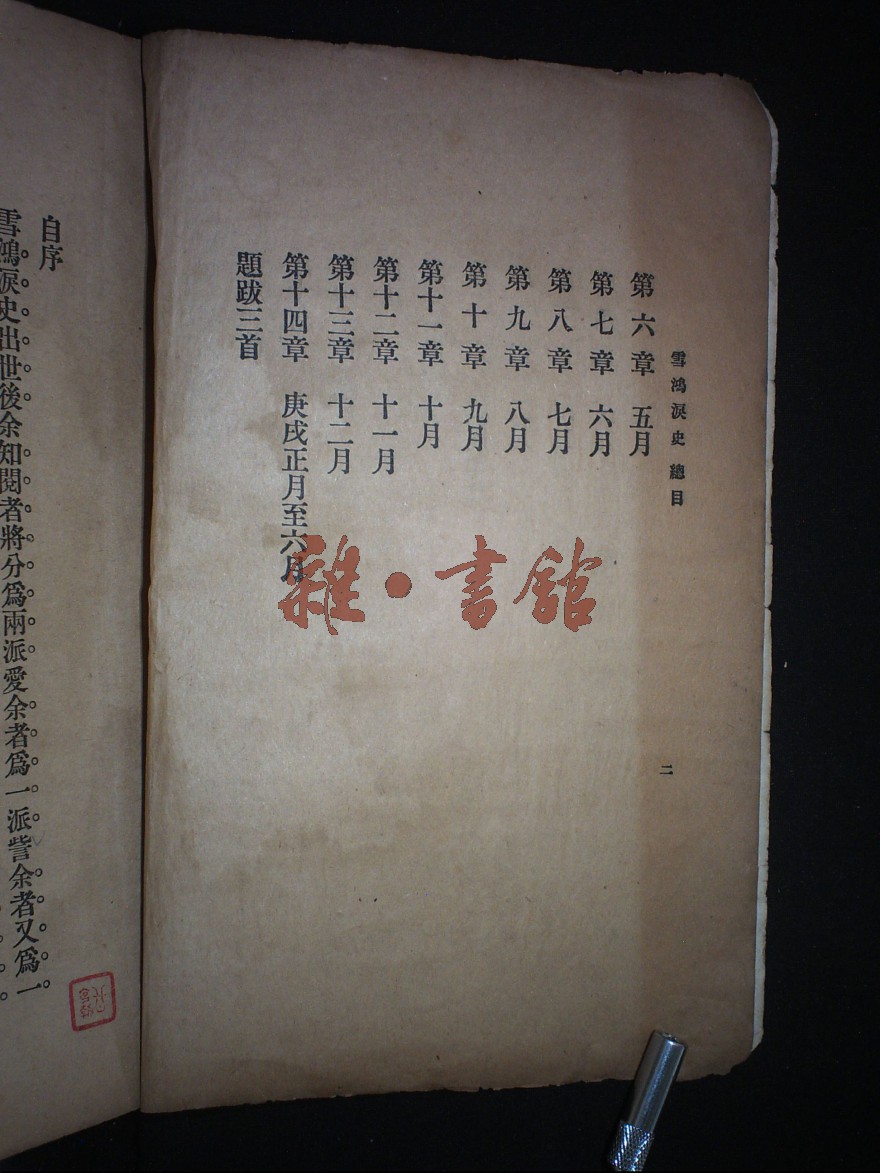 雪鴻淚史 總目
二
第六章 五月
第七章 六月
第八章 七月
第九章 八月
第十章 九月
第十一章 十月
第十二章 十一月
第十三章 十二月
第十四章 庚戌正月至六月
題跋三首
雜·書館
自序
雪鴻淚史出世後余知閱者將分爲兩派愛余者爲一派訾余者又爲一